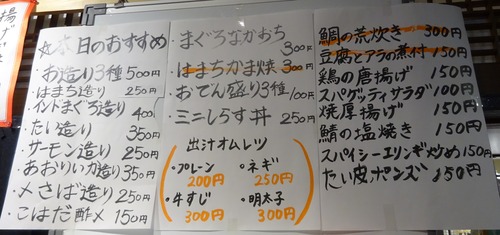 揚げ
☆本日のおすすめ
・お造り3種 500円
・はまち造り 250円
・インドまぐろ造り 400円
・たい造り 350円
・サーモン造り 250円
・あおりいか造り 350円
・〆さば造り 250円
・こはだ酢〆 150円
・まぐろなかおち 300円
・はまちかま焼 300円
・おでん盛り3種 100円
・ミニしらす丼 250円
出汁オムレツ
・プレーン 200円
・ネギ 250円
・牛すじ 300円
・明太子 300円
鯛の荒炊き 300円
豆腐とアラの煮付 150円
鶏の唐揚げ 150円
スパゲッティサラダ 100円
焼厚揚げ 150円
鯖の塩焼き 150円
スパイシーエリンギ炒め 150円
たい皮ポンズ 150円